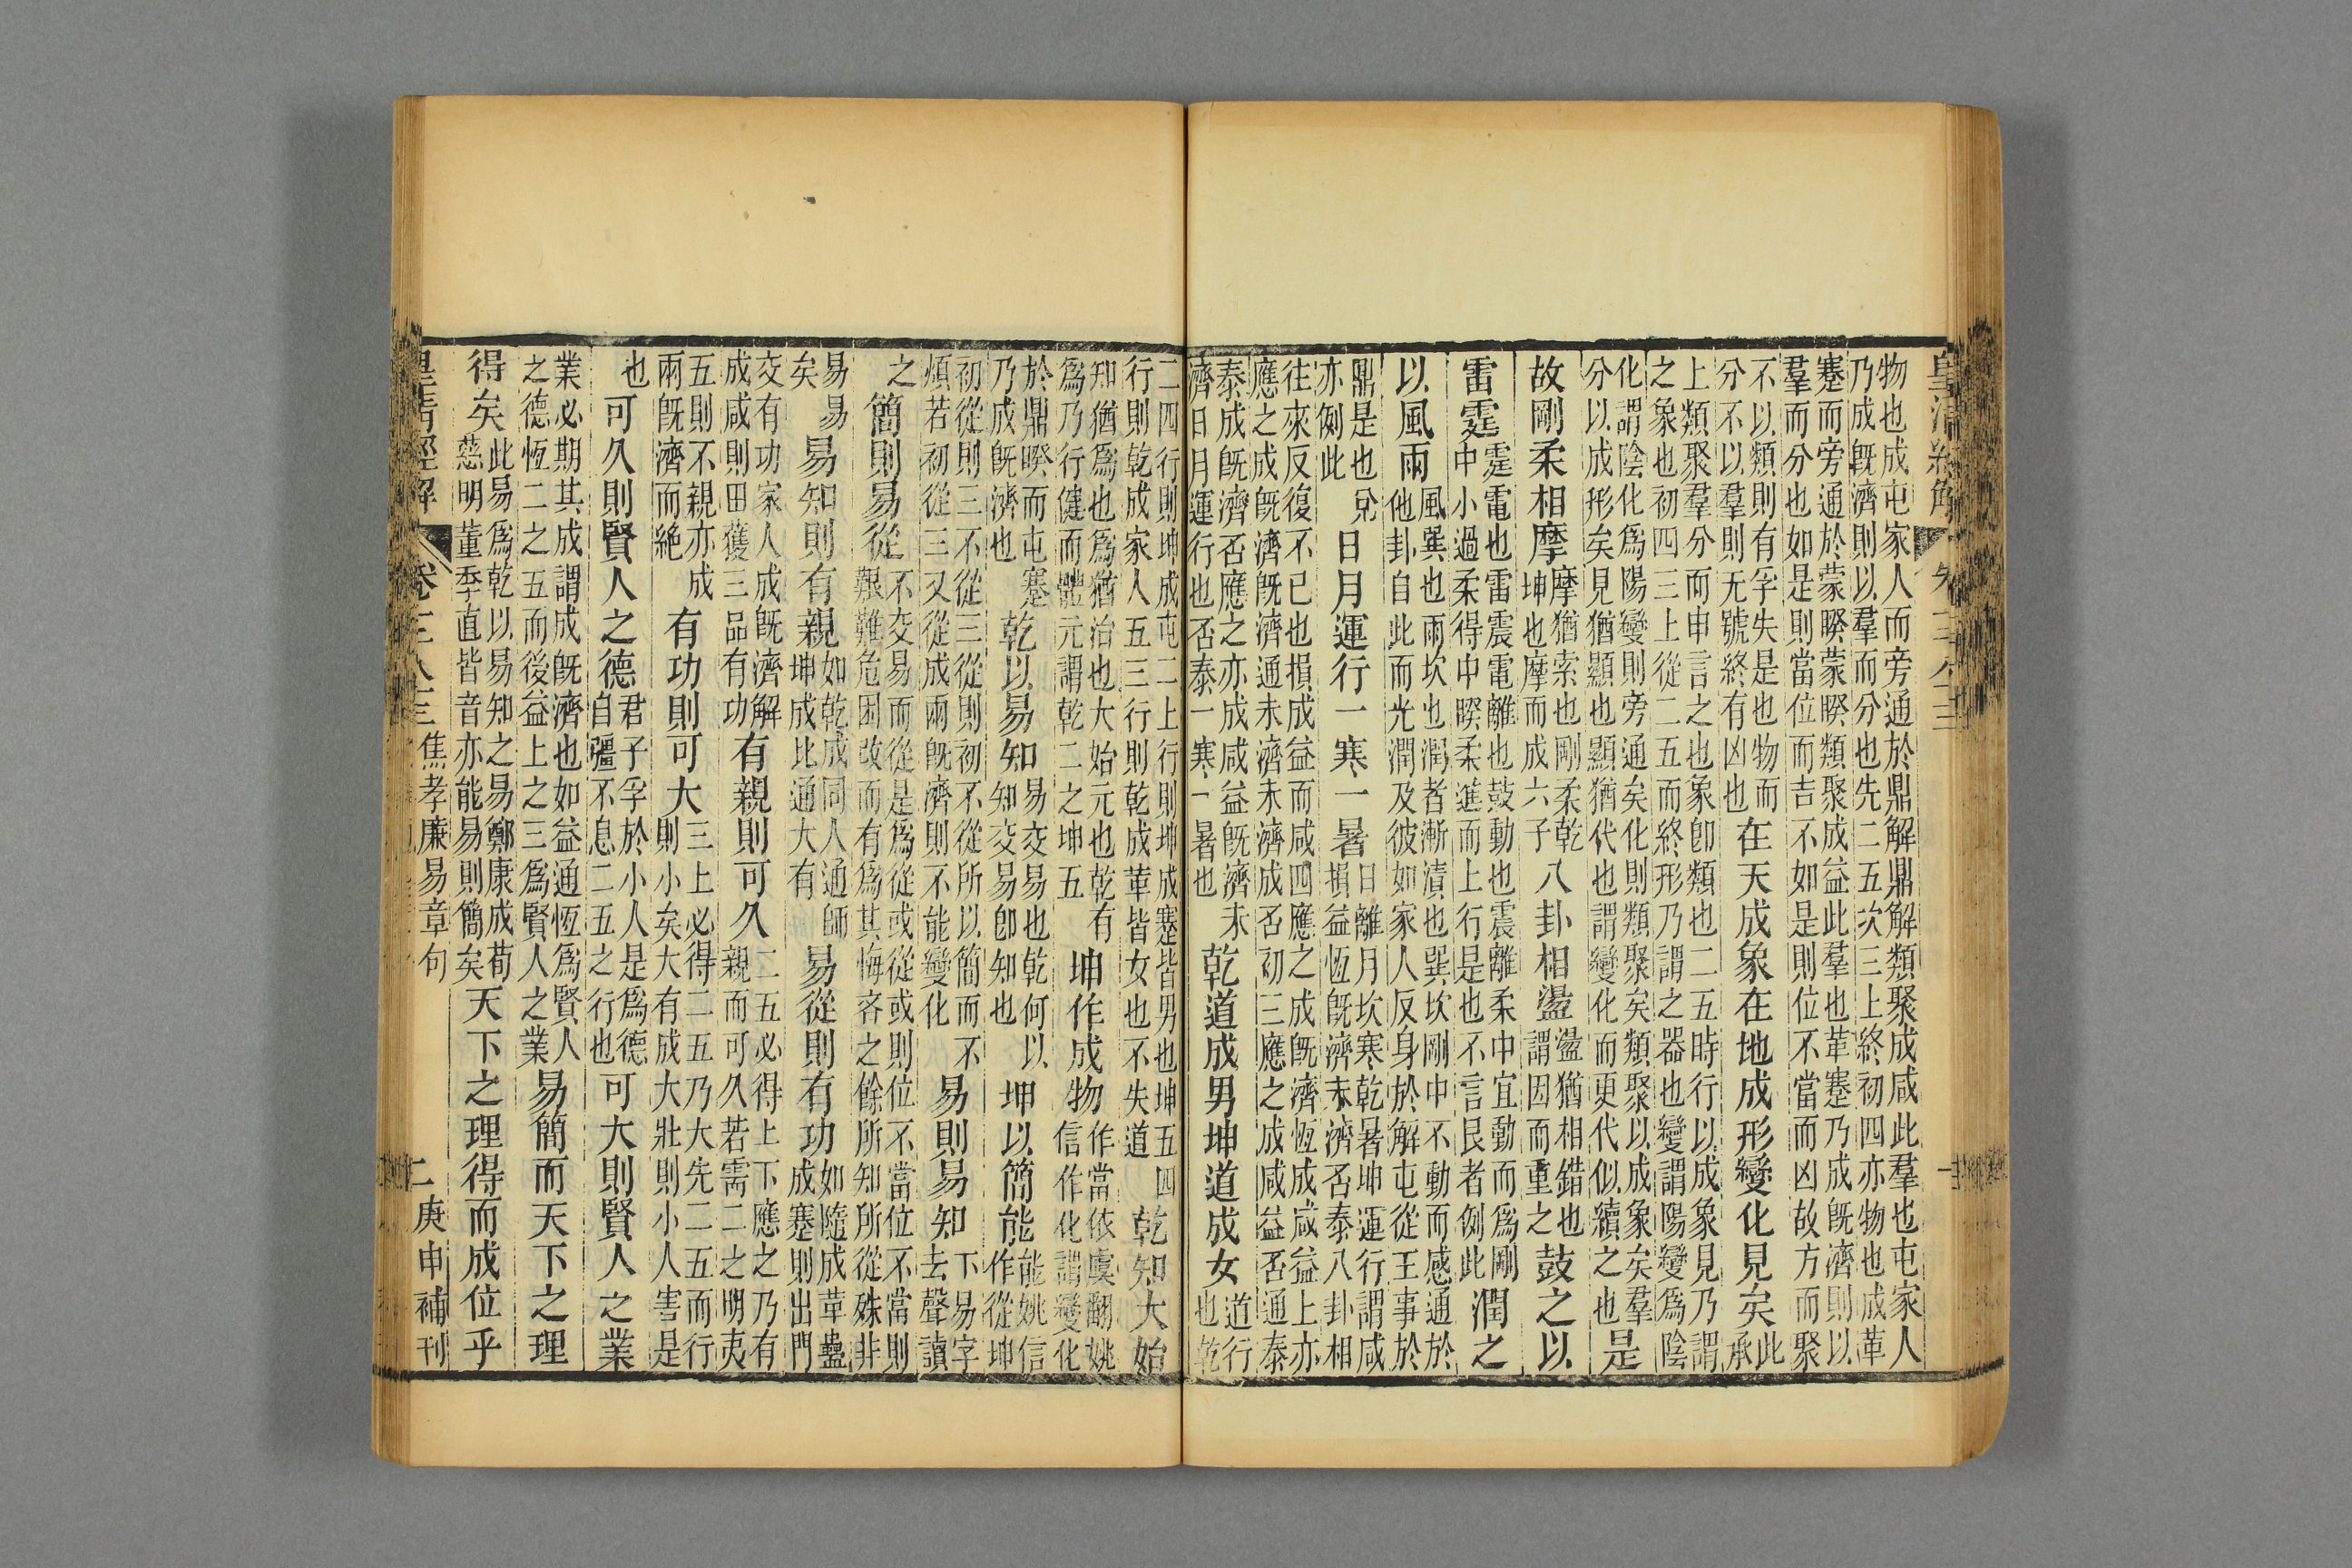 皇清經解
物也成屯家人而旁通於鼎解鼎解類聚成咸此羣也屯家人
乃成旣濟則以羣而分也先二五次三上終初四亦物也成革
蹇而旁通於蒙睽蒙睽類聚成益此羣也革蹇乃成旣濟則以
羣而分也如是則當位而吉不如是則位不當而凶故方而聚
不以類則有孚失是也物而
分不以羣則无號終有凶也
在天成象在地成形變化見矣
此
承
上類聚羣分而申言之也象卽類也二五時行以成象見乃謂
之象也初四三上從二五而終形乃謂之器也變謂陽變爲陰
化謂陰化爲陽變則旁通矣化則類聚矣類聚以成象矣羣
分以成形矣見猶顯也顯猶代也謂變化而更代似續之也
是
故剛柔相摩
摩猶索也剛柔乾
坤也摩而成六子
八卦相盪
盪猶相錯也
謂因而重之
鼓之以
雷霆
霆電也雷震電離也鼓動也震離柔中宜動而爲剛
中小過柔得中睽柔進而上行是也不言艮者例此
潤之
以風雨
風巽也雨坎也潤者漸漬也巽坎剛中不動而感通於
他卦自此而光潤及彼如家人反身於解屯從王事於
鼎是也兌
亦例此
日月運行一寒一暑
日離月坎寒乾暑坤運行謂咸
損益恆旣濟未濟否泰八卦相
往來反復不已也損成益而咸四應之成旣濟恆成咸益上亦
應之成旣濟旣濟通未濟未濟成否初三應之成咸益否通泰
泰成旣濟否應之亦成咸益旣濟未
濟日月運行也否泰一寒一暑也
乾道成男坤道成女
道行
也乾
二四行則坤成屯二上行則坤成蹇皆男也坤五四
行則乾成家人五三行則乾成革皆女也不失道
乾知大始
知猶爲也爲猶治也大始元也乾有
爲乃行健而體元謂乾二之坤五
坤作成物
作當依虞翻姚
信作化謂變化
於鼎睽而屯蹇
乃成旣濟也
乾以易知
易交易也乾何以
知交易卽知也
坤以簡能
能姚信
作從坤
初從則三不從三從則初不從所以簡而不
煩若初從三又從成兩旣濟則不能變化
易則易知
下易字
去聲讀
之
簡則易從
不交易而從是爲從或從或則位不當位不當則
艱難危困改而有爲其悔吝之餘所知所從殊非
易易
矣
易知則有親
如乾成同人通師
坤成比通大有
易從則有功
如隨成革蠱
成蹇則出門
交有功家人成旣濟解
成咸則田獲三品有功
有親則可久
二五必得上下應之乃有
親而可久若需二之明夷
五則不親亦成
兩旣濟而絕
有功則可大
三上必得二五乃大先二五而行
則小矣大有成大壯則小人害是
也
可久則賢人之德
君子孚於小人是爲德
自彊不息二五之行也
可大則賢人之業
業必期其成謂成旣濟也如益通恆爲賢人
之德恆二之五而後益上之三爲賢人之業
易簡而天下之理
得矣
此易爲乾以易知之易鄭康成荀
慈明董季直皆音亦能易則簡矣
天下之理得而成位乎
皇清經解
焦孝廉易章句
二
庚申補刊